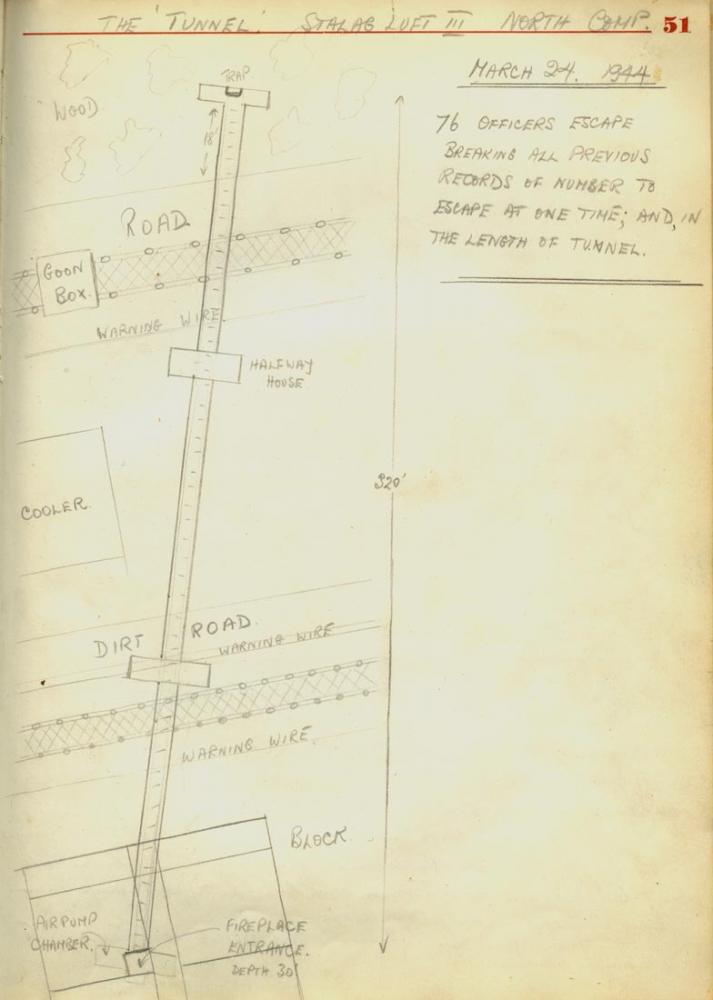 THE 'TUNNEL'. STALAG LUFT III NORTH COMP. 51
MARCH 24. 1944
76 OFFICERS ESCAPE
BREAKING ALL PREVIOUS
RECORDS OF NUMBER TO
ESCAPE AT ONE TIME; AND, IN
THE LENGTH OF TUNNEL.
TRAP.
WOOD
18'
ROAD
GOON
BOX.
WARNING WIRE.
HALFWAY
HOUSE
320'
COOLER.
DIRT ROAD.
WARNING WIRE
WARNING WIRE.
BLOCK.
AIRPUMP
CHAMBER.
FIREPLACE
ENTRANCE.
DEPTH 30'